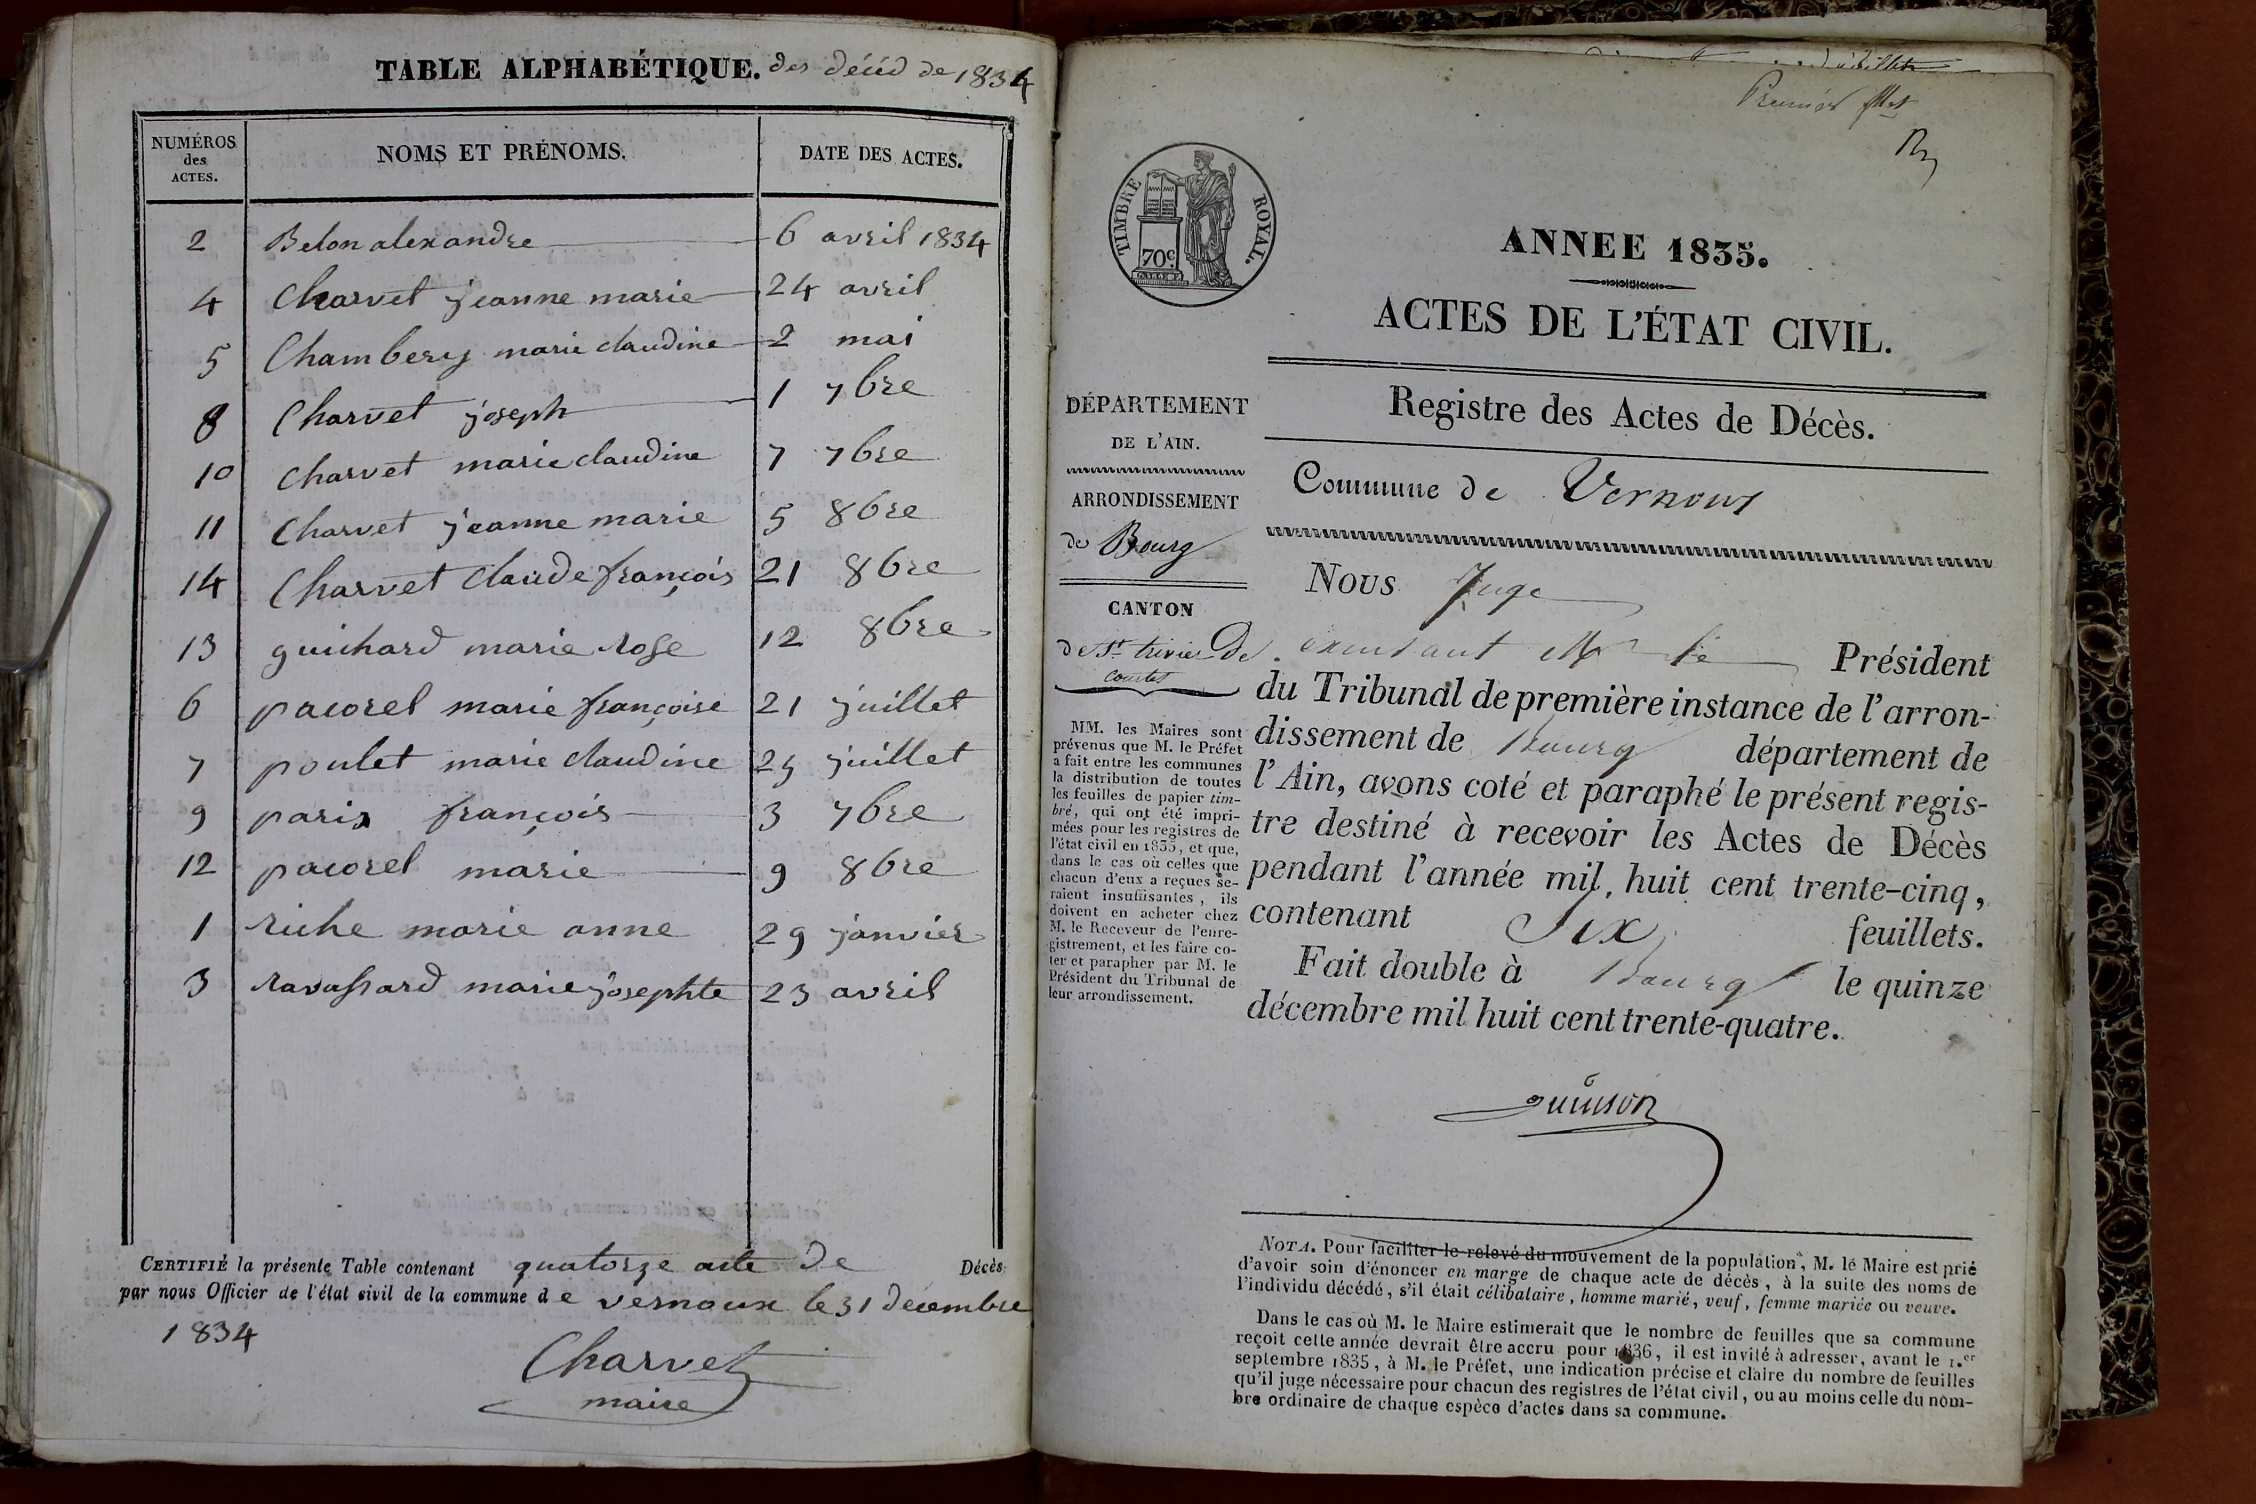 TABLE ALPHABÉTIQUE. des décéd de 1834
NUMÉROS des ACTES. NOMS ET PRÉNOMS. DATE DES ACTES.
2 Belon alexandre 6 avril 1834
4 Charvet jeanne marie 24 avril
5 Chambery marie claudine 2 mai
8 Charvet joseph 1 7bre
10 charvet marie claudine 7 7bre
11 Charvet jeanne marie 5 8bre
14 Charvet Claude françois 21 8bre
13 guichard marie rose 12 8bre
6 pacorel marie françoise 21 juillet
7 poulet marie claudine 25 juillet
9 paris françois 3 7bre
12 pacorel marie 9 8bre
1 riche marie anne 29 janvier
3 ravassard marie josephte 23 avril
CERTIFIÉ la présente Table contenant quatorze acte de Décès
par nous Officier de l'état civil de la commune de vernoux le 31 décembre
1834
Charvet
maire
Premier
TIMBRE ROYAL.
70c.
ANNEE 1835.
ACTES DE L'ÉTAT CIVIL.
DÉPARTEMENT
DE L'AIN.
ARRONDISSEMENT
de Bourg
CANTON
de St trivier de
courtes
MM. les Maires sont
prévenus que M. le Préfet
a fait entre les communes
la distribution de toutes
les feuilles de papier tim-
bré, qui ont été impri-
mées pour les registres de
l'état civil en 1835, et que,
dans le cas où celles que
chacun d'eux a reçues se-
raient insuffisantes, ils
doivent en acheter chez
M. le Receveur de l'enre-
gistrement, et les faire co-
ter et parapher par M. le
Président du Tribunal de
leur arrondissement.
Registre des Actes de Décès.
Commune de Vernoux
Nous Juge
Président
du Tribunal de première instance de l'arron-
dissement de Bourg département de
l'Ain, avons coté et paraphé le présent regis-
tre destiné à recevoir les Actes de Décès
pendant l'année mil huit cent trente-cinq,
contenant Six feuillets.
Fait double à Bourg le quinze
décembre mil huit cent trente-quatre.
NOTA. Pour faciliter le relevé du mouvement de la population, M. le Maire est prié
d'avoir soin d'énoncer en marge de chaque acte de décès, à la suite des noms de
l'individu décédé, s'il était célibataire, homme marié, veuf, femme mariée ou veuve.
Dans le cas où M. le Maire estimerait que le nombre de feuilles que sa commune
reçoit cette année devrait être accru pour 1836, il est invité à adresser, avant le 1.er
septembre 1835, à M. le Préfet, une indication précise et claire du nombre de feuilles
qu'il juge nécessaire pour chacun des registres de l'état civil, ou au moins celle du nom-
bre ordinaire de chaque espèce d'actes dans sa commune.